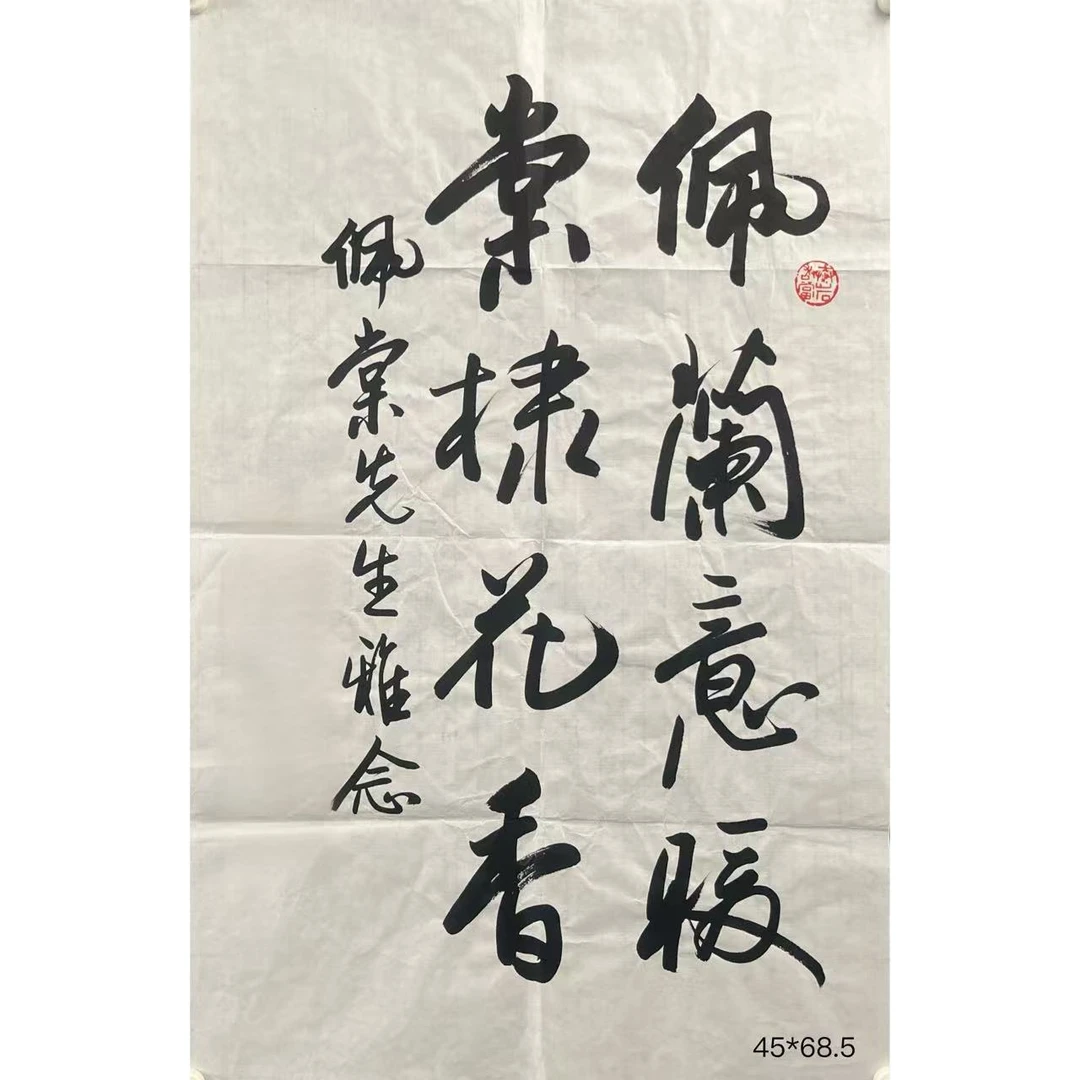 佩蘭意暖
棠棣花香
佩棠先生雅念
45*68.5